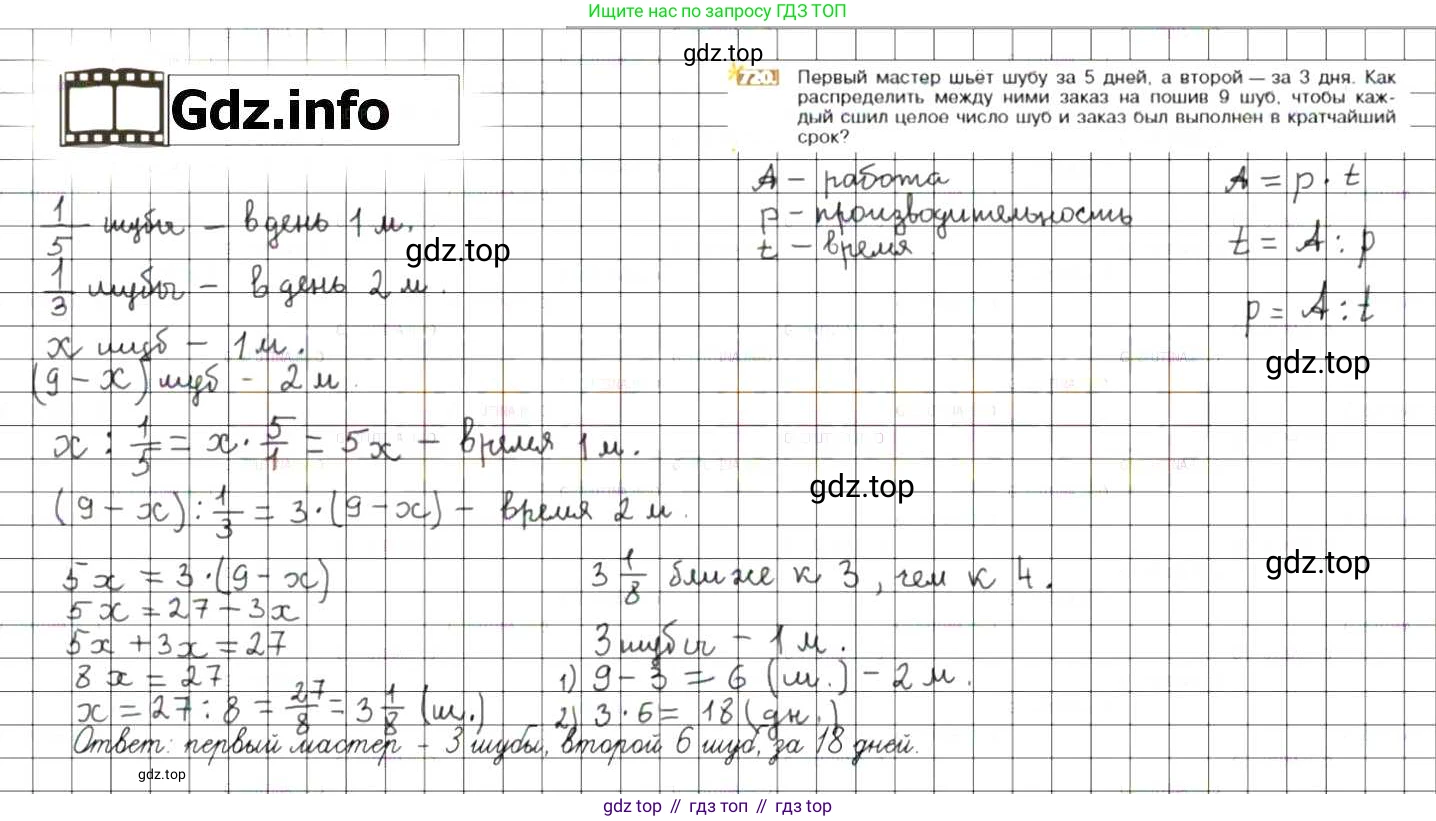 Ищите нас по запросу ГДЗ ТОП
gdz.top
Gdz.info
720. Первый мастер шьёт шубу за 5 дней, а второй — за 3 дня. Как
распределить между ними заказ на пошив 9 шуб, чтобы каж-
дый сшил целое число шуб и заказ был выполнен в кратчайший
срок?
A – работа
A = p · t
p – производительность
t – время
t = A : p
p = A : t
1/5 шубы – в день 1 м.
gdz.top
1/3 шубы – в день 2 м.
x шуб – 1 м.
(9 – x) шуб – 2 м.
gdz.top
x : 1/5 = x · 5/1 = 5x – время 1 м.
(9 – x) : 1/3 = 3 · (9 – x) – время 2 м.
gdz.top
5x = 3 · (9 – x)
5x = 27 – 3x
5x + 3x = 27
8x = 27
x = 27 : 8 = 27/8 = 3 1/8 (ш.)
3 1/8 ближе к 3, чем к 4.
gdz.top
3 шубы – 1 м.
1) 9 – 3 = 6 (ш.) – 2 м.
2) 3 · 6 = 18 (дн.)
Ответ: первый мастер – 3 шубы, второй 6 шуб, за 18 дней.
gdz.top
gdz top // гдз топ // gdz top